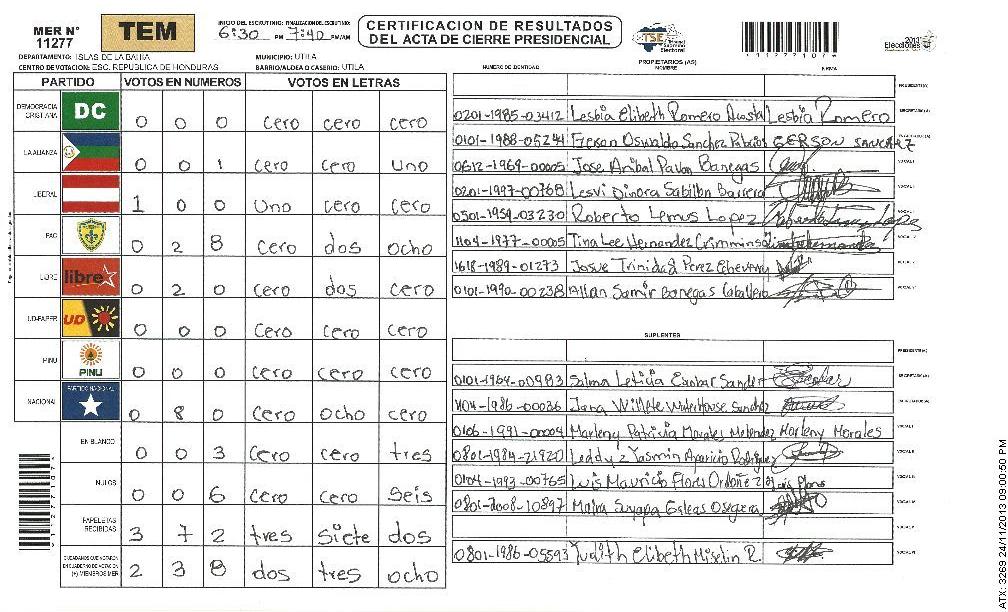 MER N° 11277
TEM
INICIO DEL ESCRUTINIO: 6:30 PM FINALIZACION DEL ESCRUTINIO: 7:40 PM/AM
CERTIFICACION DE RESULTADOS
DEL ACTA DE CIERRE PRESIDENCIAL
TSE Tribunal Supremo Electoral
2013 Elecciones
DEPARTAMENTO: ISLAS DE LA BAHIA MUNICIPIO: UTILA
CENTRO DE VOTACION: ESC. REPUBLICA DE HONDURAS BARRIO/ALDEA O CASERIO: UTILA
PARTIDO VOTOS EN NUMEROS VOTOS EN LETRAS
DEMOCRACIA CRISTIANA DC 0 0 0 cero cero cero
LA ALIANZA 0 0 1 cero cero uno
LIBERAL 1 0 0 uno cero cero
PAC 0 2 8 cero dos ocho
LIBRE libre 0 2 0 cero dos cero
UD-FAPER UD 0 0 0 cero cero cero
PINU PINU 0 0 0 cero cero cero
NACIONAL PARTIDO NACIONAL 0 8 0 cero ocho cero
EN BLANCO 0 0 3 cero cero tres
NULOS 0 0 6 cero cero seis
PAPELETAS RECIBIDAS 3 7 2 tres siete dos
CIUDADANOS QUE VOTARON EN CUADERNO DE VOTACION (+) MIEMBROS MER 2 3 8 dos tres ocho
NUMERO DE IDENTIDAD PROPIETARIOS (AS) NOMBRE FIRMA
PRESIDENTE(A)
0201-1985-03412 Lesbia Elibeth Romero Acosta Lesbia Romero SECRETARIO(A)
0101-1988-05244 Gerson Oswaldo Sanchez GERSON SANCHEZ
0612-1969-00005 Jose Anibal Pavon Banegas VOCAL I
0201-1987-00768 Lesvi Dinora Sabillon Barrera
0501-1954-03230 Roberto Lemus Lopez
1104-1977-00005 Tina Lee Hernandez Crimmins
1618-1989-01273 Josue Trinidad Perez Echeverry
0101-1990-00238 Allan Samir Banegas Caballero
SUPLENTES
PRESIDENTE(A)
0101-1964-00983 Salma Leticia Escobar Sander Escobar SECRETARIO(A)
1104-1986-00036 Jana Waterhouse Sanchez
0106-1991-00004 Marleny Patricia Morales Melendez Marleny Morales
0801-1984-21920 Leddy's Yasmin Aparicio Rodriguez
0104-1993-00765 Luis Mauricio Flores Ordoñez Luis Flores
0801-2008-10897 Maira Suyapa Galeas Oseguera
0801-1986-05593 Judith Elibeth Miselin R.
ATX: 3269 24/11/2013 09:00:50 PM